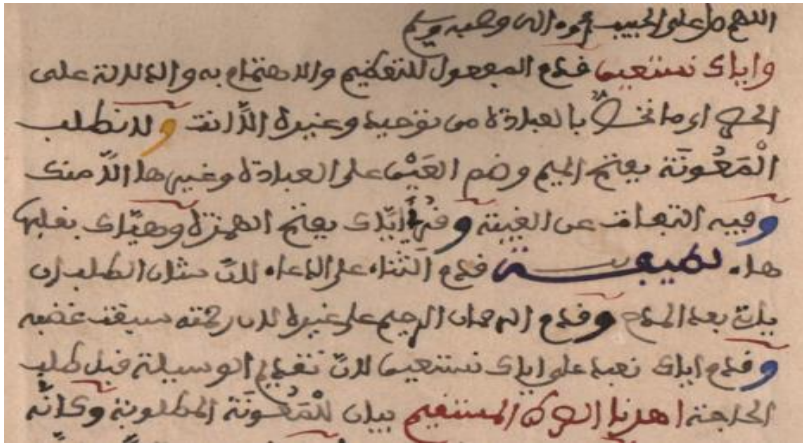 اللهم صل على الحبيب وءاله وصحبه وسلم
وإياك نستعين قدم المفعول للتعظيم والاهتمام به والدلالة على
الحصر أي ما نخص بالعبادة من توحيد وغيره إلا أنت ولا نطلب
الْمَعُونَة بفتح الميم وضم العَيْن على العبادة وغيرها إلا منك
وفيه التفات عن الغيبة وقُرِأَ أَيَّاك بفتح الهمزة وهيّاك بقلبها
هاء لطيفة قدم الثناء على الدعاء لأن شأن الطلب أن
يأتي بعد المدح وقدم الرحمان الرحيم على غيره لأن رحمته سبقت غضبه
وقدم إياك نعبد على إياك نستعين لأن تقديم الوسيلة قبل طلب
الحاجة اهدنا الصراط المستقيم بيان لِلْمَعُونَة المطلوبة وكأنّه